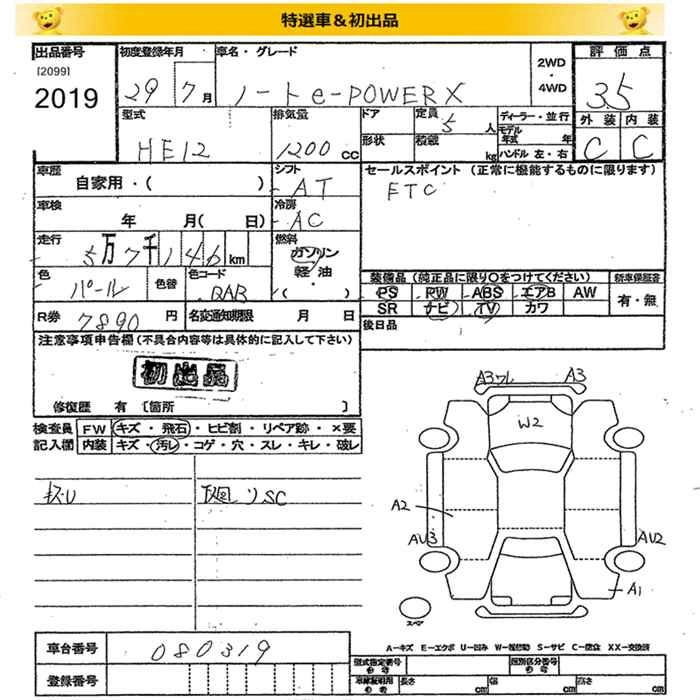 特選車＆初出品
出品番号 初度登録年月 車名・グレード 2WD・4WD 評価点
[2099] 2019 29 7月 ノートe-POWER X 3.5
型式 排気量 ドア 定員 ディーラー・並行 外装 内装
HE12 1200cc 形状 5人 積載 kg モデル年式 年 ハンドル 左・右 C C
車歴 シフト セールスポイント (正常に機能するものに限ります)
自家用・( ) AT ETC
車検 冷房
年 月( 日) AC
走行 燃料
5万7千146km ガソリン
軽油
・( )
色 色替 色コード 装備品 (純正品に限り○をつけてください) 新車保証書
パール QAB PS PW ABS エアB AW 有・無
SR ナビ TV カワ
R券 7890円 名変通知期限 月 日 後日品
注意事項申告欄(不具合内容等は具体的に記入して下さい)
初出品
修復歴 有 〔箇所 〕
検査員 FW キズ・飛石・ヒビ割・リペア跡・×要
記入欄 内装 キズ・汚レ・コゲ・穴・スレ・キレ・破レ
A3ワレ A3
W2
A2
AU3 AU2
A1
スペア
車台番号 080319
A−キズ E−エクボ U−凹み W−補修跡 S−サビ C−腐食 XX−交換済
登録番号
型式指定番号 類別区分番号
長さ cm 幅 cm 高さ cm